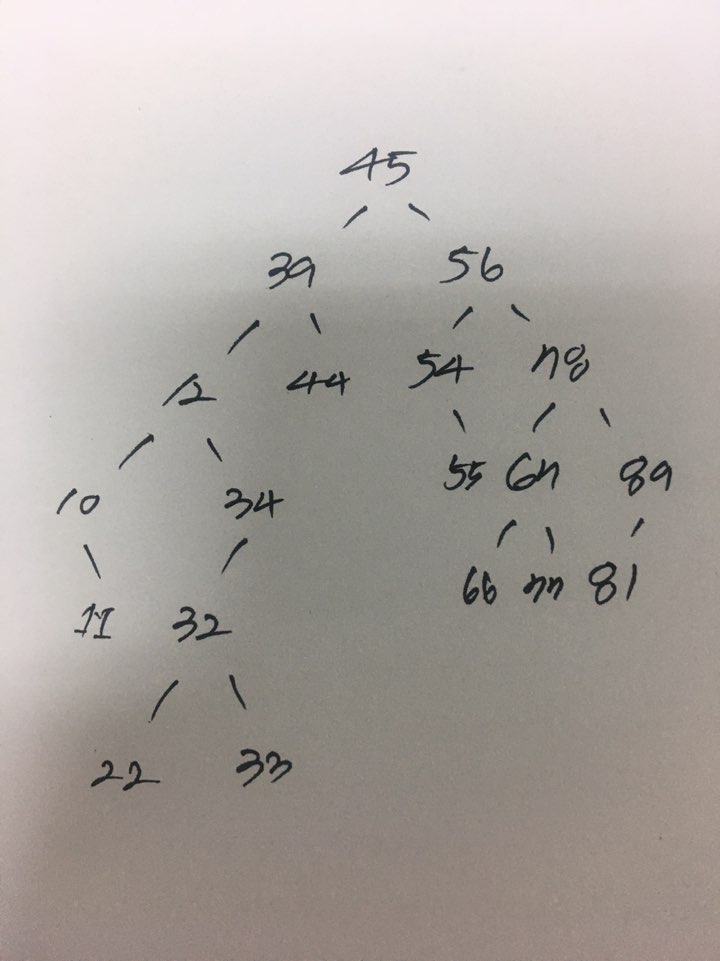 45
39 56
12 44 54 78
10 34 55 67 89
11 32 66 77 81
22 33